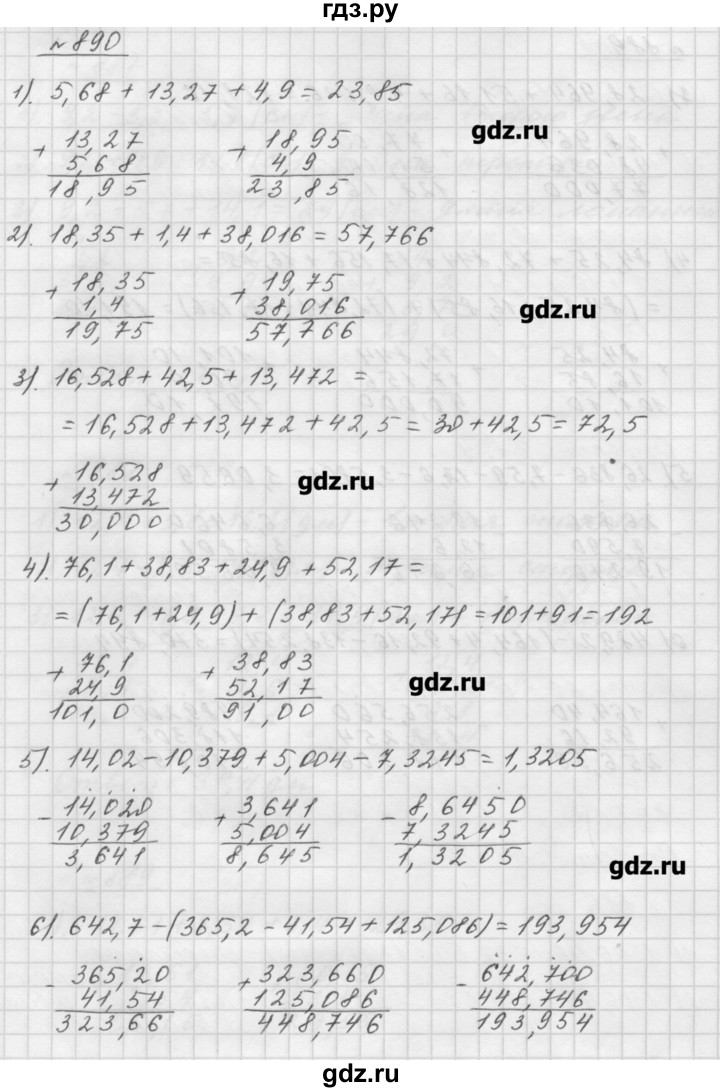 гдз.ру
№890
1). 5,68 + 13,27 + 4,9 = 23,85
+ 13,27 + 18,95 gdz.ru
5,68 4,9
18,95 23,85
2). 18,35 + 1,4 + 38,016 = 57,766
+ 18,35 + 19,75
1,4 38,016 gdz.ru
19,75 57,766
3). 16,528 + 42,5 + 13,472 =
= 16,528 + 13,472 + 42,5 = 30 + 42,5 = 72,5
+ 16,528 gdz.ru
13,472
30,000
4). 76,1 + 38,83 + 24,9 + 52,17 =
= (76,1 + 24,9) + (38,83 + 52,17) = 101 + 91 = 192
+ 76,1 + 38,83
24,9 52,17 gdz.ru
101,0 91,00
5). 14,02 - 10,379 + 5,004 - 7,3245 = 1,3205
- 14,020 + 3,641 - 8,6450
10,379 5,004 7,3245
3,641 8,645 1,3205
gdz.ru
6). 642,7 - (365,2 - 41,54 + 125,086) = 193,954
- 365,20 + 323,660 - 642,700
41,54 125,086 448,746
323,66 448,746 193,954
gdz.ru